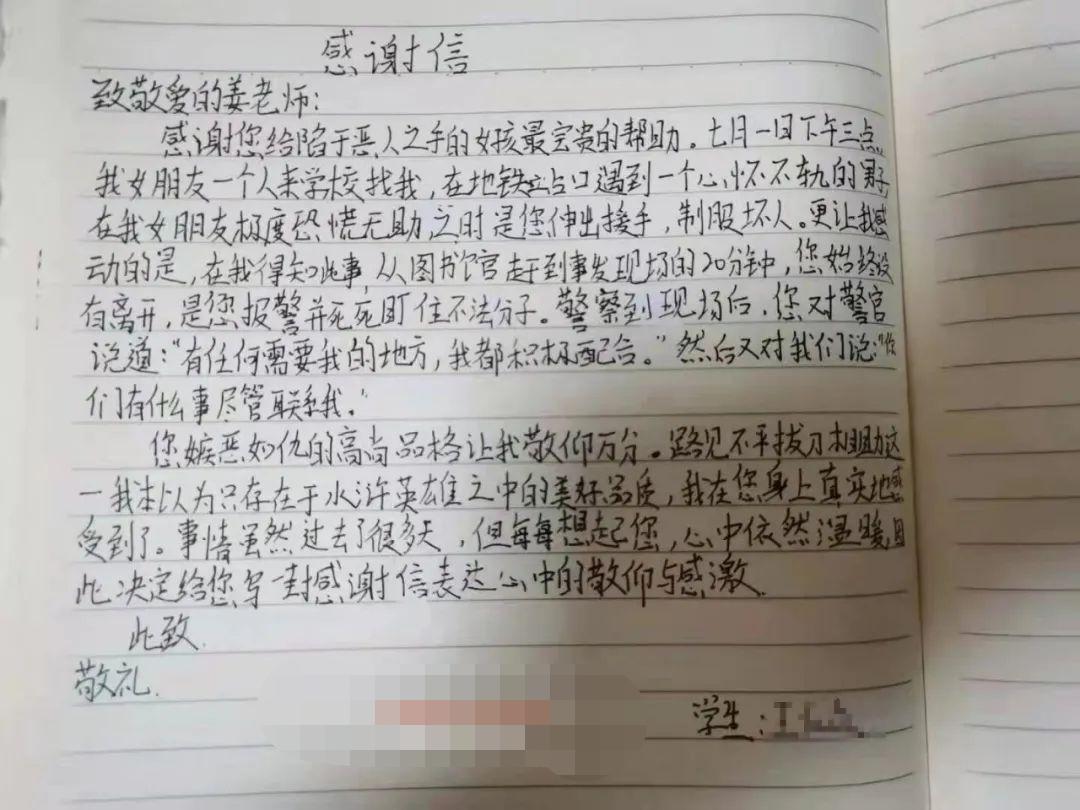 感谢信
致敬爱的姜老师:
感谢您给陷于恶人之手的女孩最宝贵的帮助。七月一日下午三点
我女朋友一个人来学校找我,在地铁站口遇到一个心怀不轨的男子
在我女朋友极度恐慌无助之时是您伸出援手,制服坏人。更让我感
动的是,在我得知此事,从图书馆赶到事发现场的20分钟,您始终没
有离开,是您报警并死死盯住不法分子。警察到现场后,您对警官
说道:“有任何需要我的地方,我都积极配合。”然后又对我们说:“你
们有什么事尽管联系我。”
您嫉恶如仇的高尚品格让我敬仰万分。路见不平拔刀相助这
一我本以为只存在于水浒英雄之中的美好品质,我在您身上真实地感
受到了。事情虽然过去了很多天,但每每想起您,心中依然温暖因
此决定给您写一封感谢信表达心中的敬仰与感激.
此致.
敬礼.
学生: